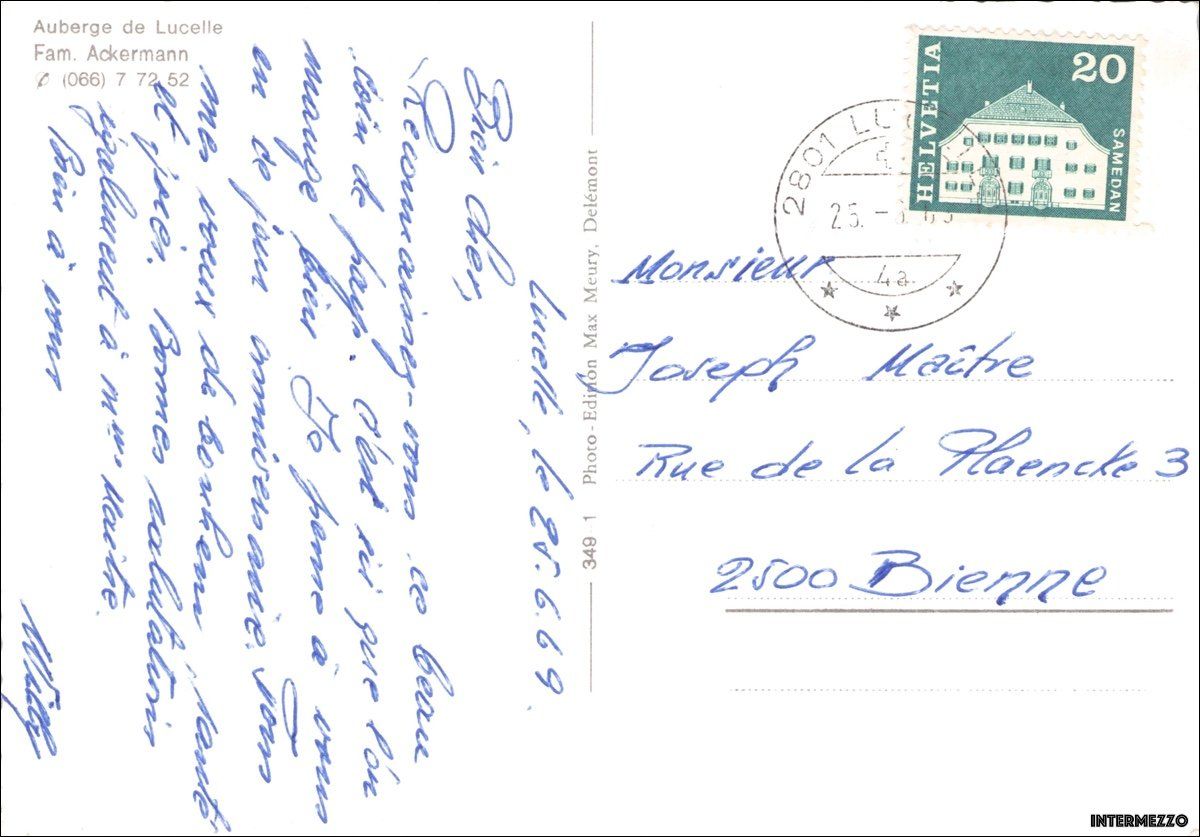 Auberge de Lucelle
Fam. Ackermann
✆ (066) 7 72 52
HELVETIA
20
SAMEDAN
2801 LUC
25. -
4a
Lucelle, le 25.6.69
Bien cher,
Reconnaissez-vous ce beau
coin de pays. C'est ici que l'on
mange bien. Je pense à vous
en ce jour anniversaire. Tous
mes voeux de bonheur, santé
et joie. Bonnes salutations
également à Mme Maître.
Bien à vous
Photo-Edition Max Meury, Delémont
349 1
Monsieur
Joseph Maître
Rue de la Plaencke 3
2500 Bienne
INTERMEZZO